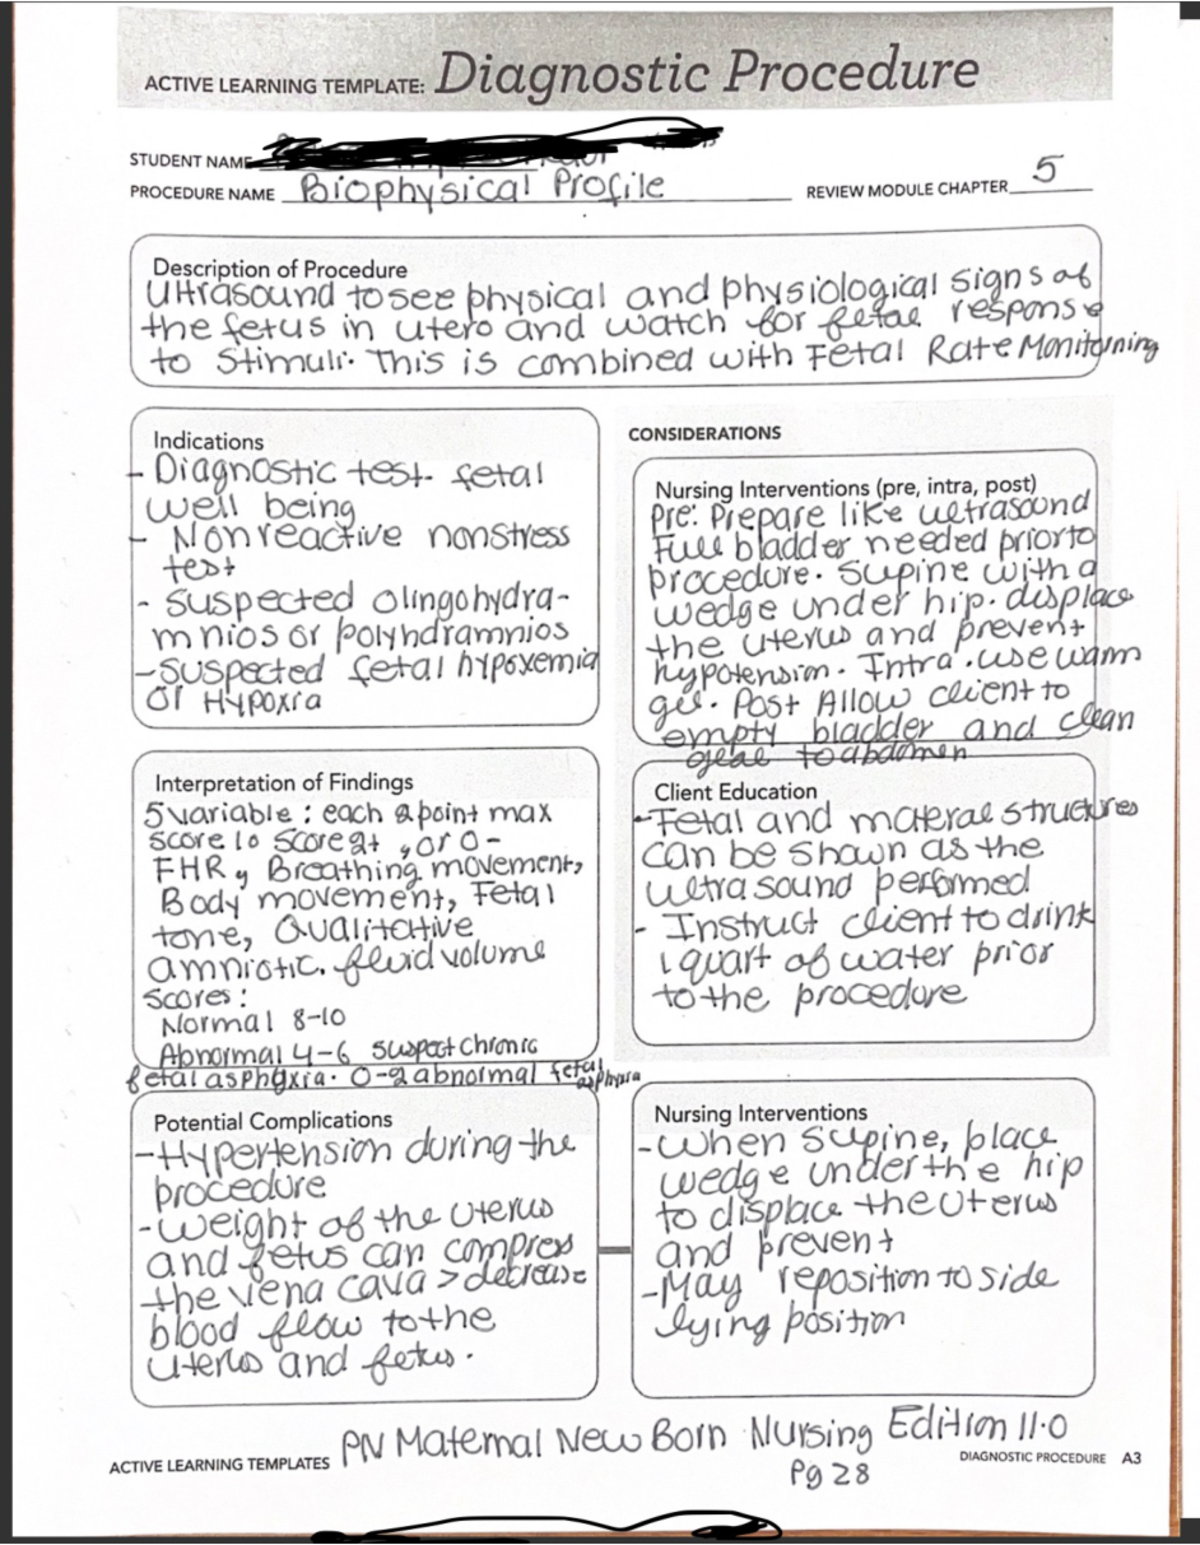 ACTIVE LEARNING TEMPLATE: Diagnostic Procedure
STUDENT NAME
PROCEDURE NAME Biophysical Profile
REVIEW MODULE CHAPTER 5
Description of Procedure
Ultrasound to see physical and physiological signs of
the fetus in utero and watch for fetal response
to stimuli. This is combined with Fetal Rate Monitoring
Indications
- Diagnostic test- fetal
well being
- Nonreactive nonstress
test
- Suspected olingohydra-
mnios or polyhdramnios
- Suspected fetal hypoxemia
or Hypoxia
CONSIDERATIONS
Nursing Interventions (pre, intra, post)
Pre: Prepare like ultrasound
Full bladder needed prior to
procedure. Supine with a
wedge under hip. displace
the uterus and prevent
hypotension. Intra. use warm
gel. Post Allow client to
empty bladder and clean
geal to abdomen
Interpretation of Findings
5 variable: each 2 point max
score 10 score 2+, or 0-
FHR, Breathing movement,
Body movement, Fetal
tone, Qualitative
amniotic. fluid volume
Scores:
Normal 8-10
Abnormal 4-6 suspect chronic
fetal asphyxia. 0-2 abnormal fetal
asphyxia
Client Education
- Fetal and materal structures
can be shown as the
ultrasound performed
- Instruct client to drink
1 quart of water prior
to the procedure
Potential Complications
- Hypertension during the
procedure
- Weight of the uterus
and fetus can compress
the vena cava > decrease
blood flow to the
uterus and fetus.
Nursing Interventions
- When supine, place
wedge under the hip
to displace the uterus
and prevent
- May reposition to side
lying position
PN Maternal New Born Nursing Edition 11.0
Pg 28
ACTIVE LEARNING TEMPLATES
DIAGNOSTIC PROCEDURE A3